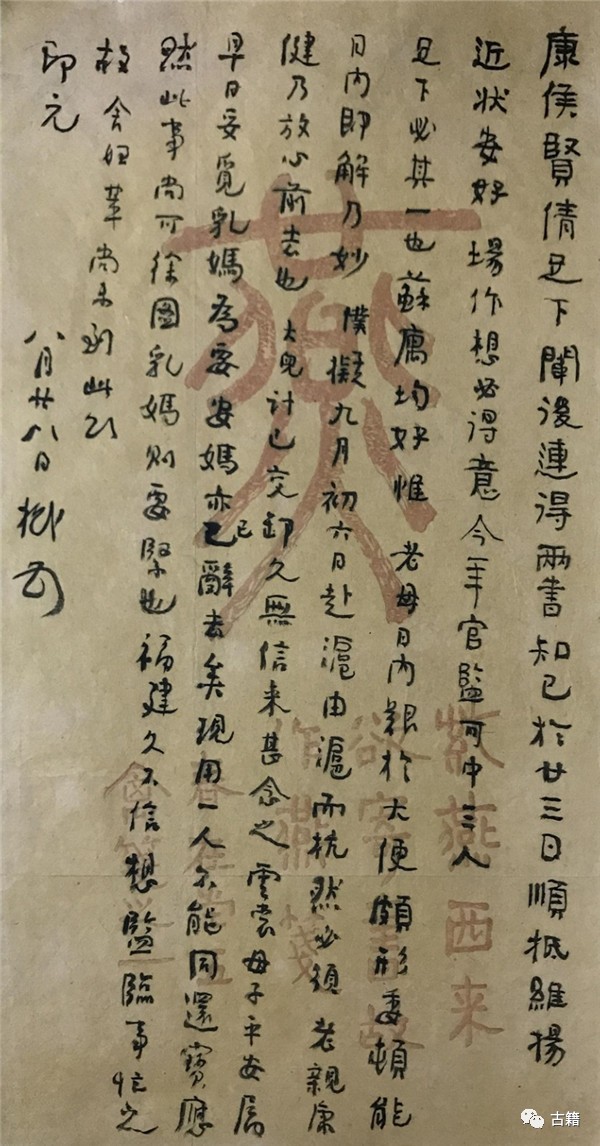 康侯賢倩足下闈後連得兩書知已於廿三日順抵維揚
近狀安好 場作想必得意今年官監可中三人
足下必其一也蘇寓均好惟 老母日內艱於大便頗形委頓能
日內即解乃妙 僕擬九月初六日赴滬由滬而杭然必須 老親康
健乃放心前去也 大兒計已交卸久無信來甚念之雲裳母子平安屬
早日妥覓乳媽為要安媽亦已辭去矣現用一人不能同還寶應
已
然此事尚可徐圖乳媽則要緊也福建久不信想監臨事忙之
故 舍姪輩尚未到此頌
即元
八月廿八日 樾
紫燕西来
欲寄
古籍